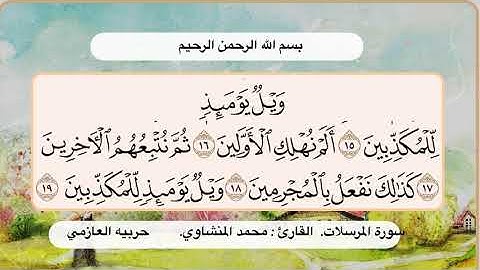 بسم الله الرحمن الرحيم
وَيْلٌ يَوْمَئِذٍ
لِّلْمُكَذِّبِينَ ١٥ أَلَمْ نُهْلِكِ الْأَوَّلِينَ ١٦ ثُمَّ نُتْبِعُهُمُ الْآخِرِينَ
١٧ كَذَٰلِكَ نَفْعَلُ بِالْمُجْرِمِينَ ١٨ وَيْلٌ يَوْمَئِذٍ لِّلْمُكَذِّبِينَ ١٩
سورة المرسلات. القارئ : محمد المنشاوي. حربيه العازمي